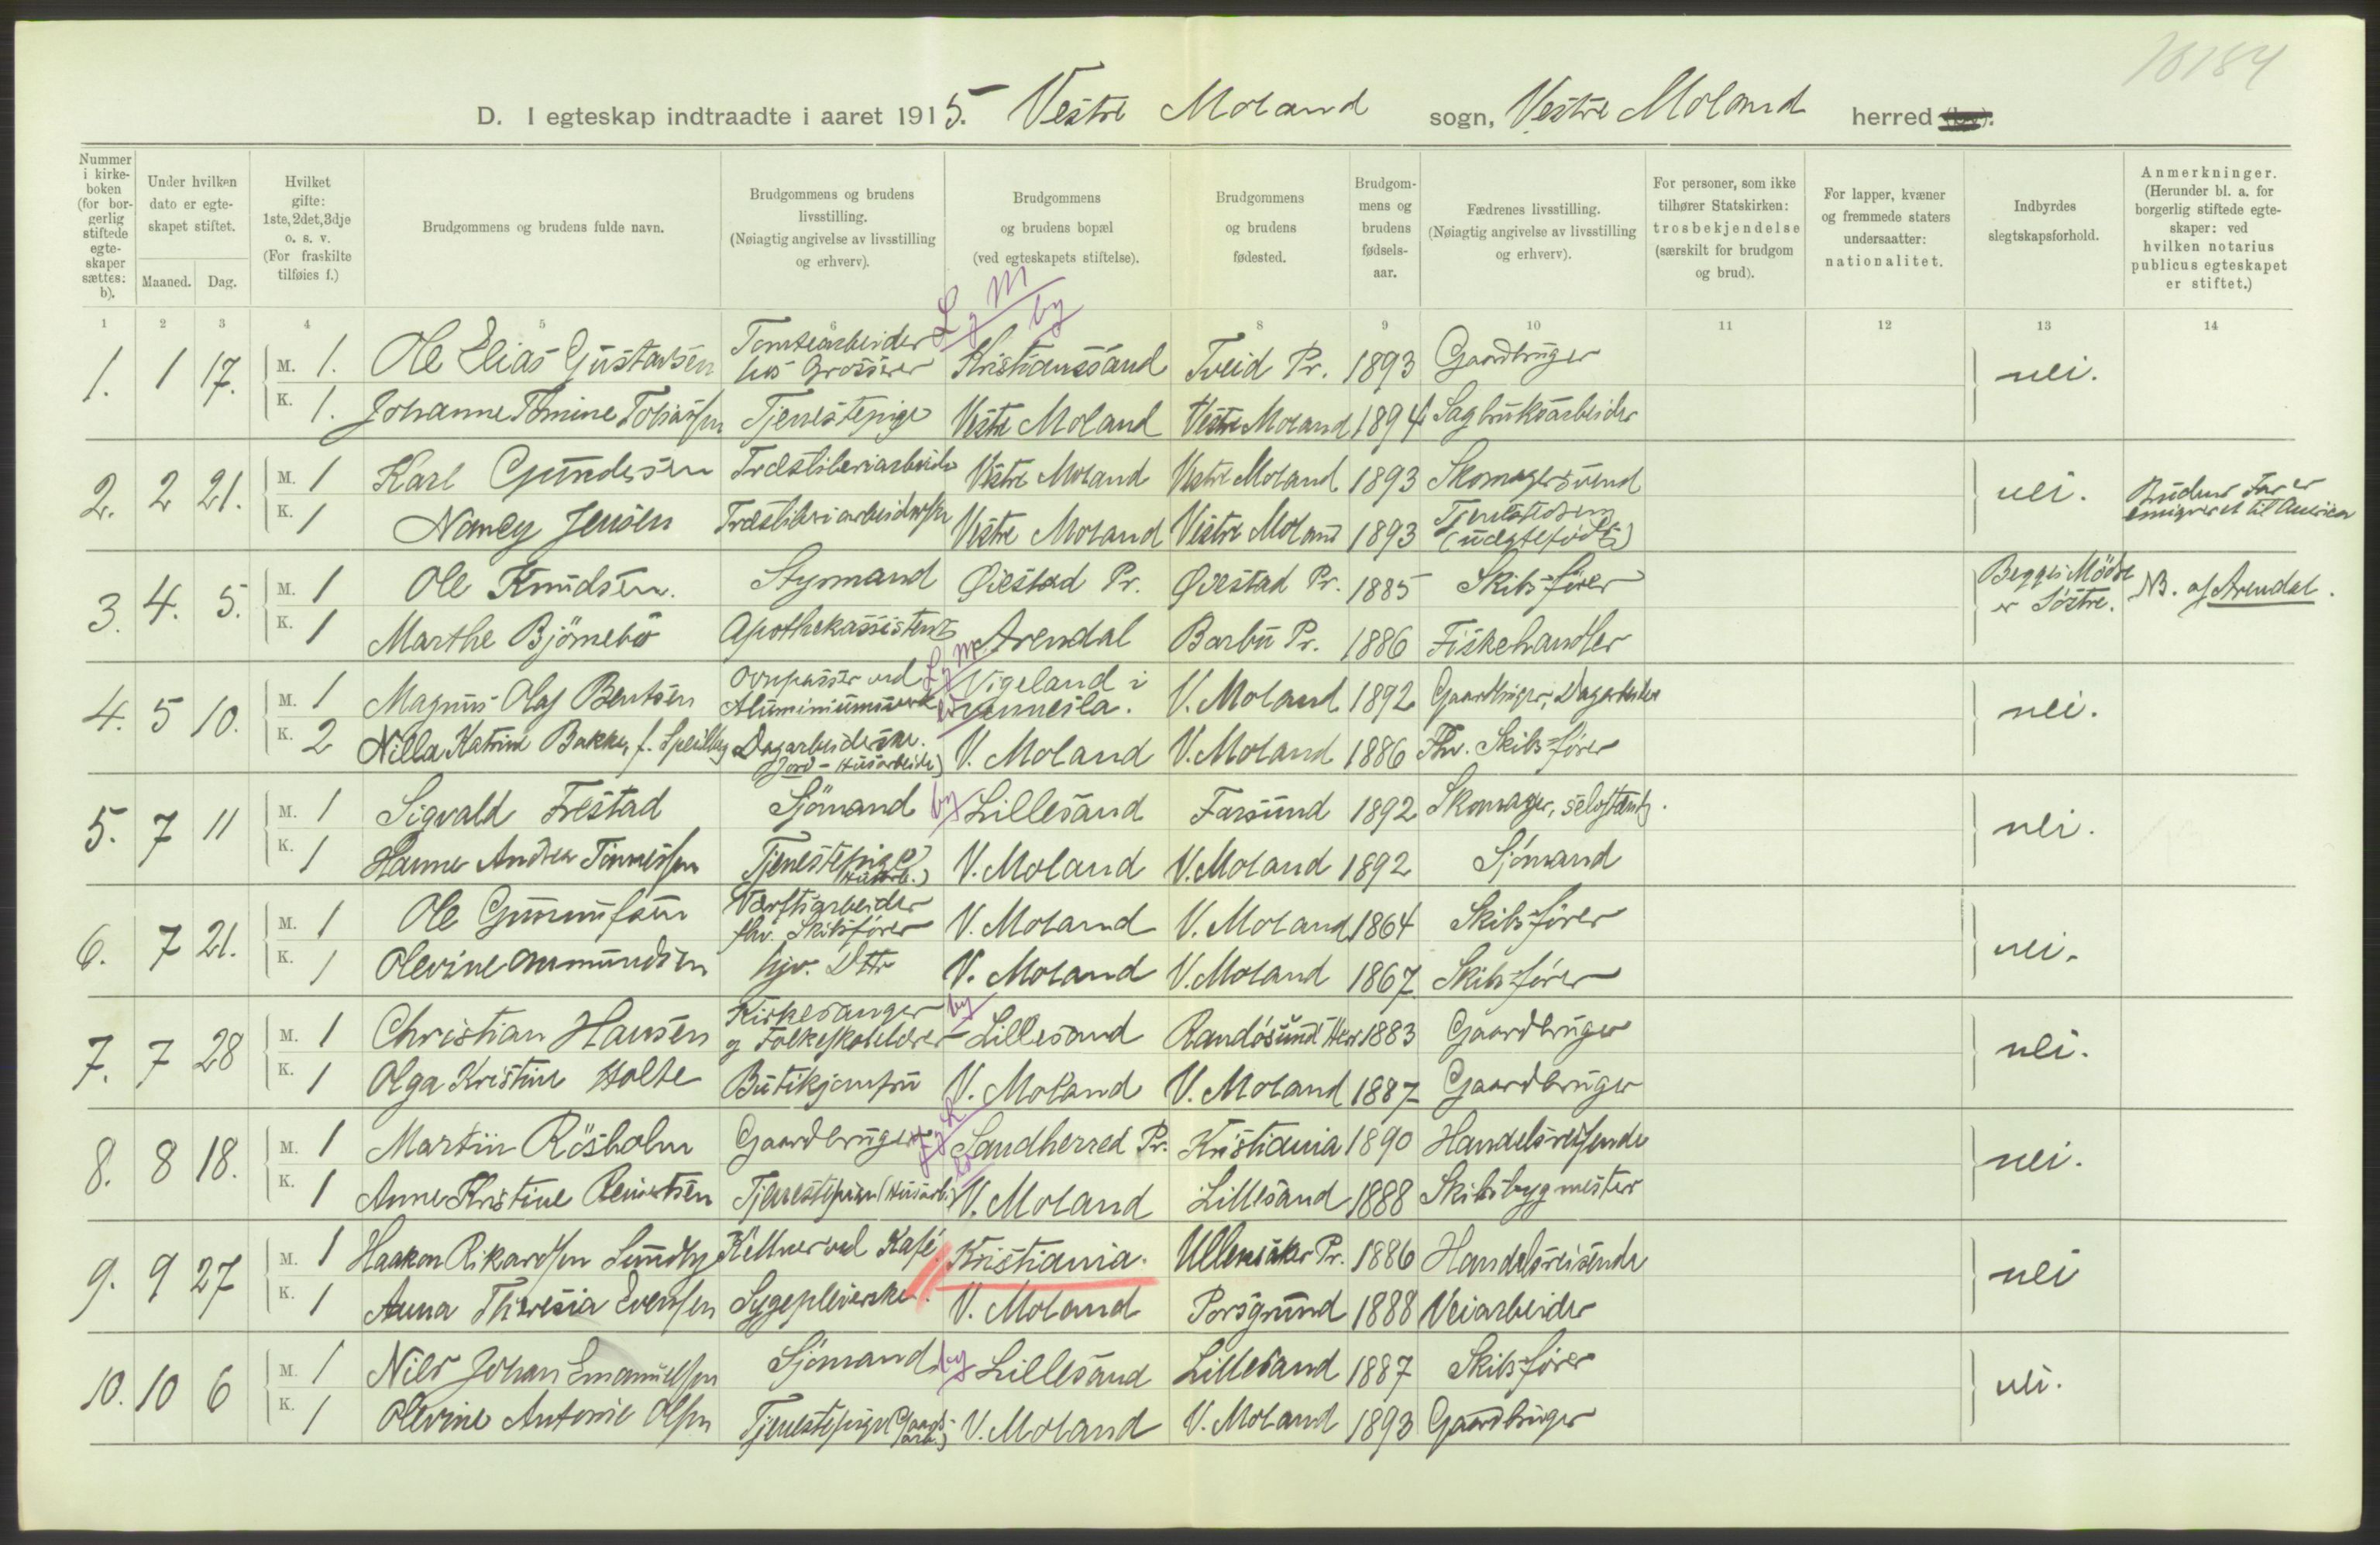 10184
D. I egteskap indtraadte i aaret 1915. Vestre Moland sogn, Vestre Moland herred (by).
Nummer i kirke-boken (for bor-gerlig stiftede egte-skaper sættes: b).
Under hvilken dato er egte-skapet stiftet.
Maaned. Dag.
Hvilket gifte: 1ste, 2det, 3dje o. s. v. (For fraskilte tilføies f.)
Brudgommens og brudens fulde navn.
Brudgommens og brudens livsstilling. (Nøiagtig angivelse av livsstilling og erhverv).
Brudgommens og brudens bopæl (ved egteskapets stiftelse).
Brudgommens og brudens fødested.
Brudgom-mens og brudens fødsels-aar.
Fædrenes livsstilling. (Nøiagtig angivelse av livsstilling og erhverv).
For personer, som ikke tilhører Statskirken: trosbekjendelse (særskilt for brudgom og brud).
For lapper, kvæner og fremmede staters undersaatter: nationalitet.
Indbyrdes slegtskapsforhold.
Anmerkninger. (Herunder bl. a. for borgerlig stiftede egte-skaper: ved hvilken notarius publicus egteskapet er stiftet.)
1 2 3 4 5 6 8 9 10 11 12 13 14
1. 1 17. M. 1. Ole Elias Gustavsen Tomtearbeider hos Grosserer Kristianssand Tveid Pr. 1893 Gaardbruger nei.
K. 1. Johanne Tomine Tobiassen Tjenestepige Vestre Moland Vestre Moland 1894 Sagbruksarbeider
2. 2 21. M. 1 Karl Gundersen Træsliberiarbeider Vestre Moland Vestre Moland 1893 Skomagersvend nei. Brudens Far er emigreret til America
K. 1 Nancy Jensen Træsliberiarbeiderske Vestre Moland Vestre Moland 1893 (uægtefødt)
3. 4. 5. M. 1 Ole Knudsen. Styrmand Øiestad Pr. Øiestad Pr. 1885 Skibsfører Begges Mødre er Søstre. NB. af Arendal.
K. 1 Marthe Bjørnebo Apothekassistent Arendal Barbu Pr. 1886 Fiskehandler
4. 5 10. M. 1 Magnus Olaf Bentsen Ovnpasser ved Aluminiumsverk Vigeland i Vennesla. V. Moland 1892 Gaardbruger, Dagarbeider nei.
K. 2 Nilla Katrine Bakke, f. Dagarbeiderske. (Jord- Husarbeide) V. Moland V. Moland 1886 Fhv. Skibsfører
5. 7 11 M. 1 Sigvald Frestad Sjømand by Lillesand Farsund 1892 Skomager, selvstændig. nei.
K. 1 Hanne Andrea Tønnessen Tjenestepige (Husarb.) V. Moland V. Moland 1892 Sjømand
6. 7 21. M. 1 Ole Gunnufsen Værftsarbeider fhv. Skibsfører V. Moland V. Moland 1864 Skibsfører nei.
K. 1 Olevine Aamundsen hjv. Dttr V. Moland V. Moland 1867 Skibsfører
7. 7 28 M. 1 Christian Hansen Kirkesanger og Folkeskolelærer by Lillesand Randøsund Her 1883 Gaardbruger nei.
K. 1 Olga Kristine Holte Butikjomfru V. Moland V. Moland 1887 Gaardbruger
8. 8 18. M. 1 Martin Røsholm Gaardbruger Sandherred Pr. Kristiania 1890 Handelsreisende nei.
K. 1 Anne Kristine Reinertsen Tjenestepige (Husarb.) V. Moland Lillesand 1888 Skibsbygmester
9. 9 27 M. 1 Haakon Rikardsen Sundby Kellner ved Kafé Kristiania. Ullensaker Pr. 1886 Handelsreisende nei
K. 1 Anna Theresia Evensen Sygepleierske. V. Moland Porsgrund 1888 Veiarbeider
10. 10 6 M. 1 Nils Johan Emanuelsen Sjømand by Lillesand Lillesand 1887 Skibsfører nei.
K. 1 Olevine Antonie Olsen Tjenestepige (Gaardsarb.) V. Moland V. Moland 1893 Gaardbruger